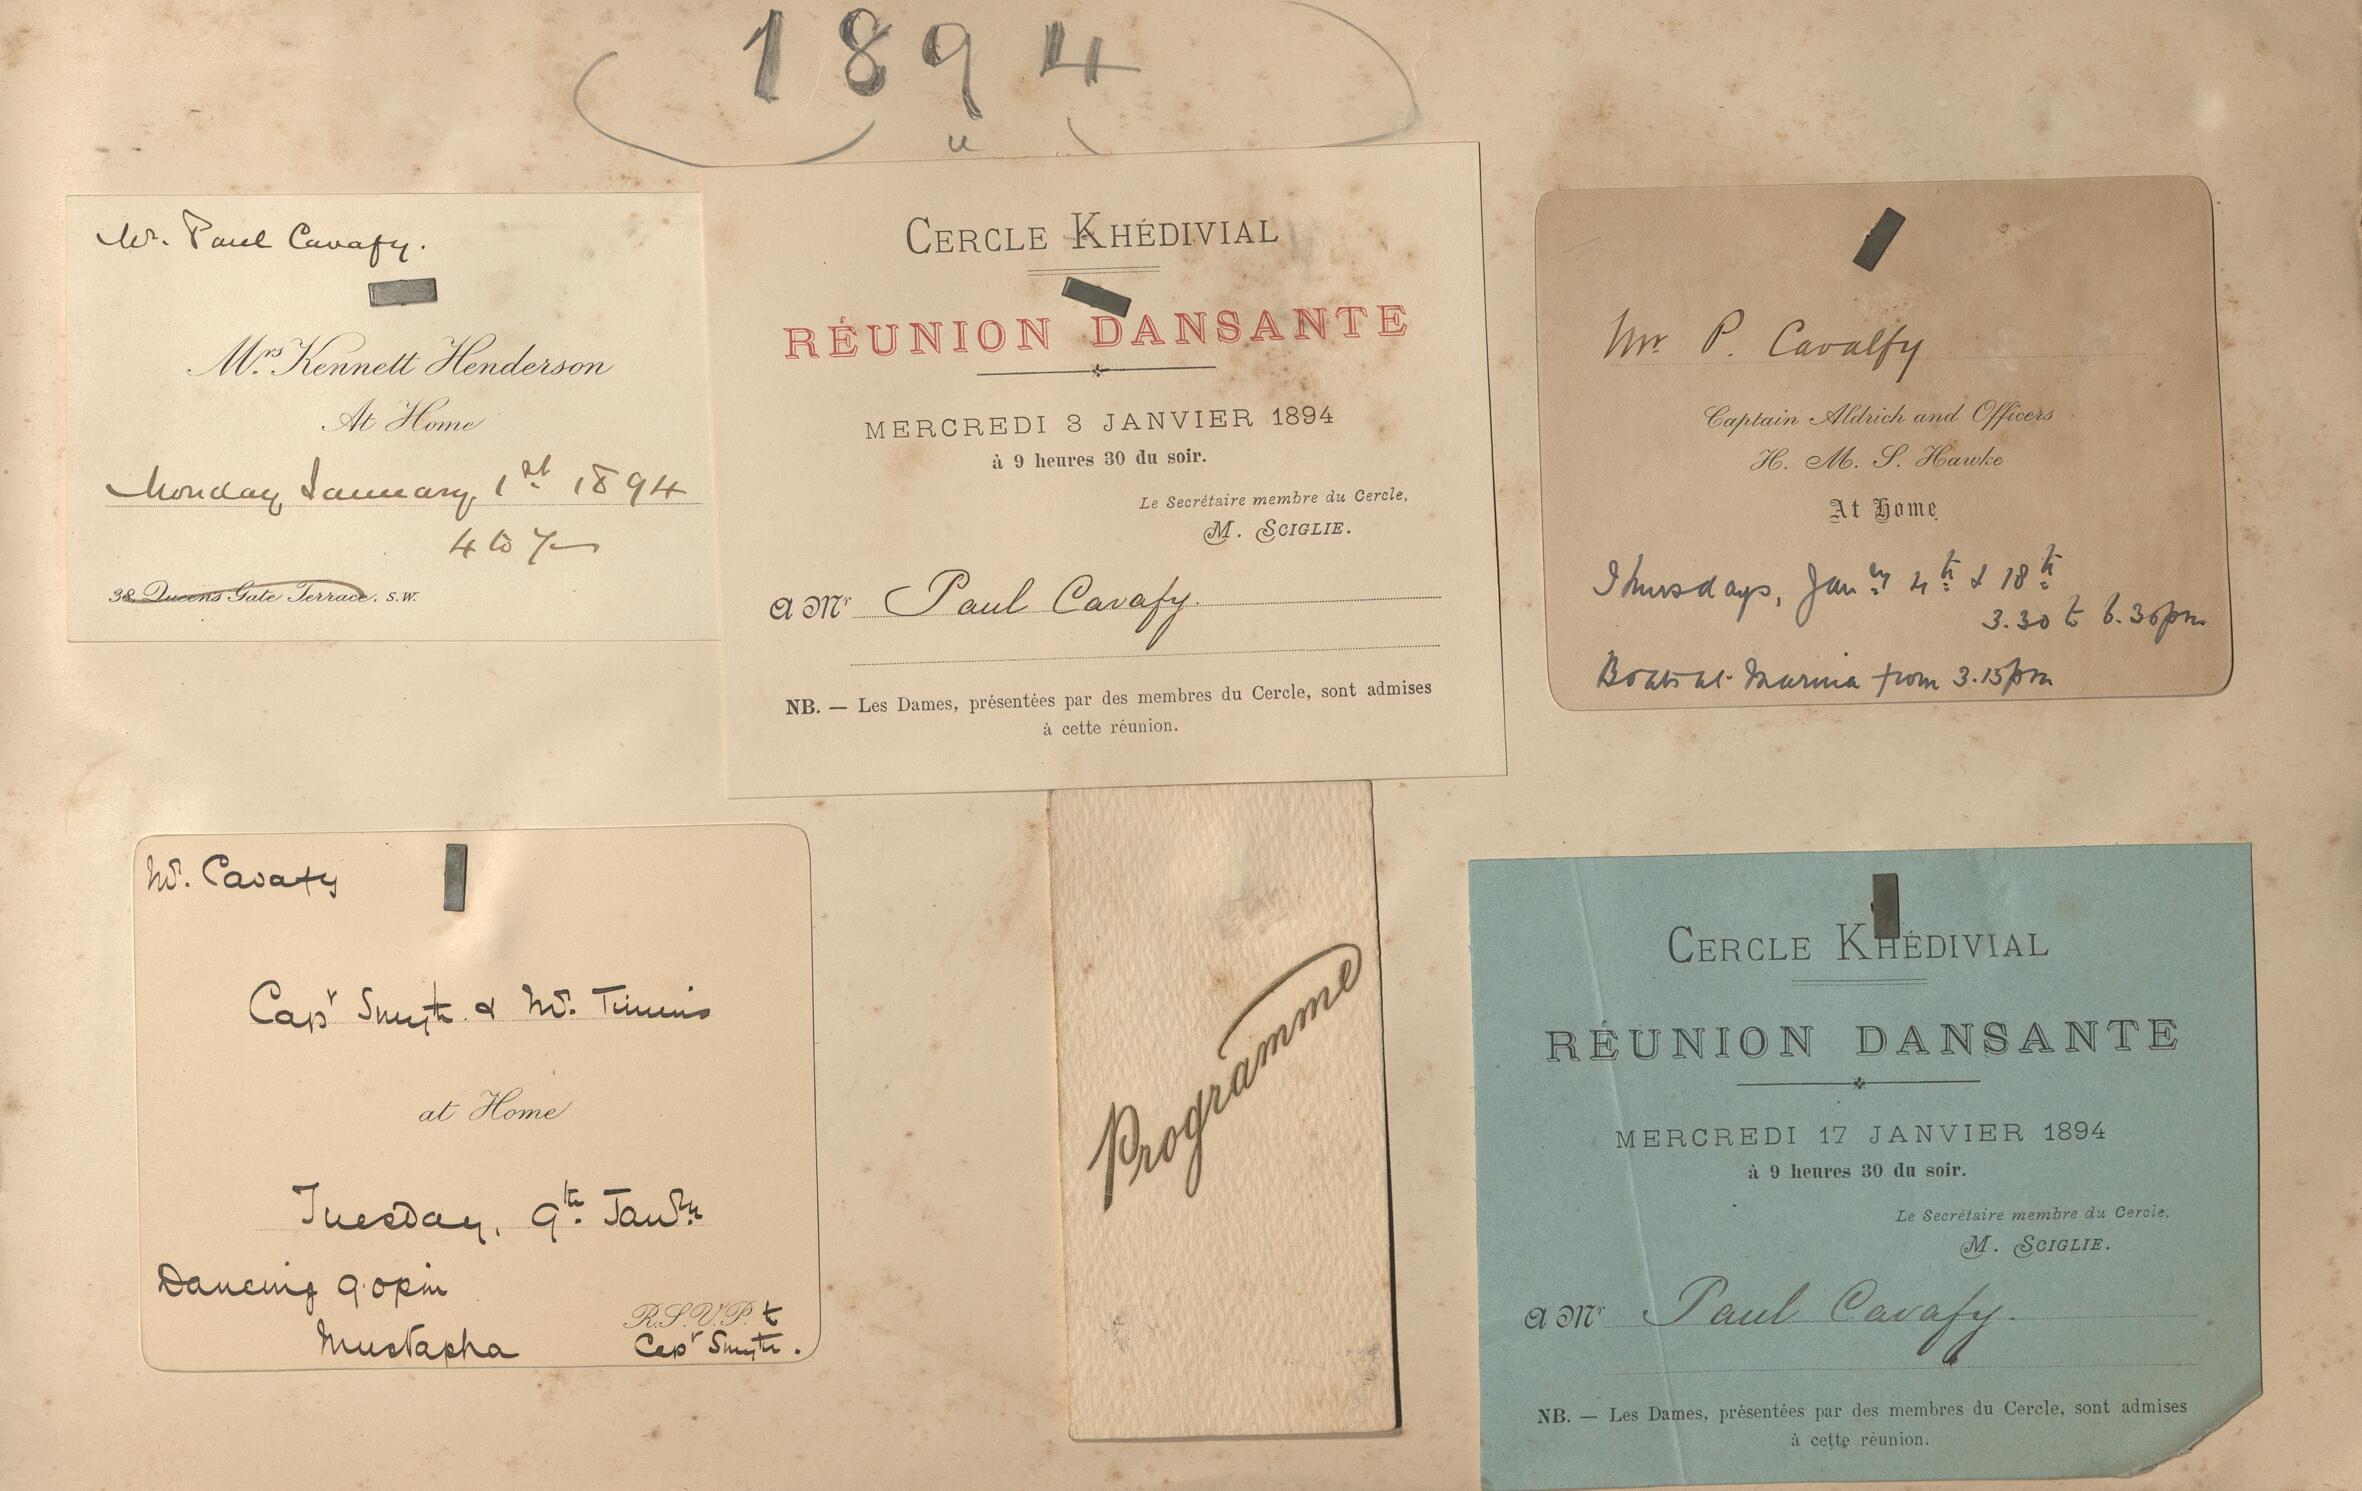 1894
Mr. Paul Cavafy.
Mrs Kennett Henderson
At Home
Monday January 1st 1894
4 to 7
38. Queens Gate Terrace. S.W.
CERCLE KHÉDIVIAL
RÉUNION DANSANTE
MERCREDI 3 JANVIER 1894
à 9 heures 30 du soir.
Le Secrétaire membre du Cercle,
M. SCIGLIE.
A Mr Paul Cavafy.
NB. — Les Dames, présentées par des membres du Cercle, sont admises
à cette réunion.
Mr P. Cavalfy
Captain Aldrich and Officers
H. M. S. Hawke
At Home
Thursdays, Jany 4th & 18th
3.30 to 6.30pm
Boats at Marina from 3.15pm
Mr. Cavafy
Capt Smyth & Mr. Timmis
at Home
Tuesday, 9th Jany
Dancing 9.0pm
Mustapha
R.S.V.P. to
Capt Smyth.
Programme
CERCLE KHÉDIVIAL
RÉUNION DANSANTE
MERCREDI 17 JANVIER 1894
à 9 heures 30 du soir.
Le Secrétaire membre du Cercle,
M. SCIGLIE.
A Mr Paul Cavafy.
NB. — Les Dames, présentées par des membres du Cercle, sont admises
à cette réunion.